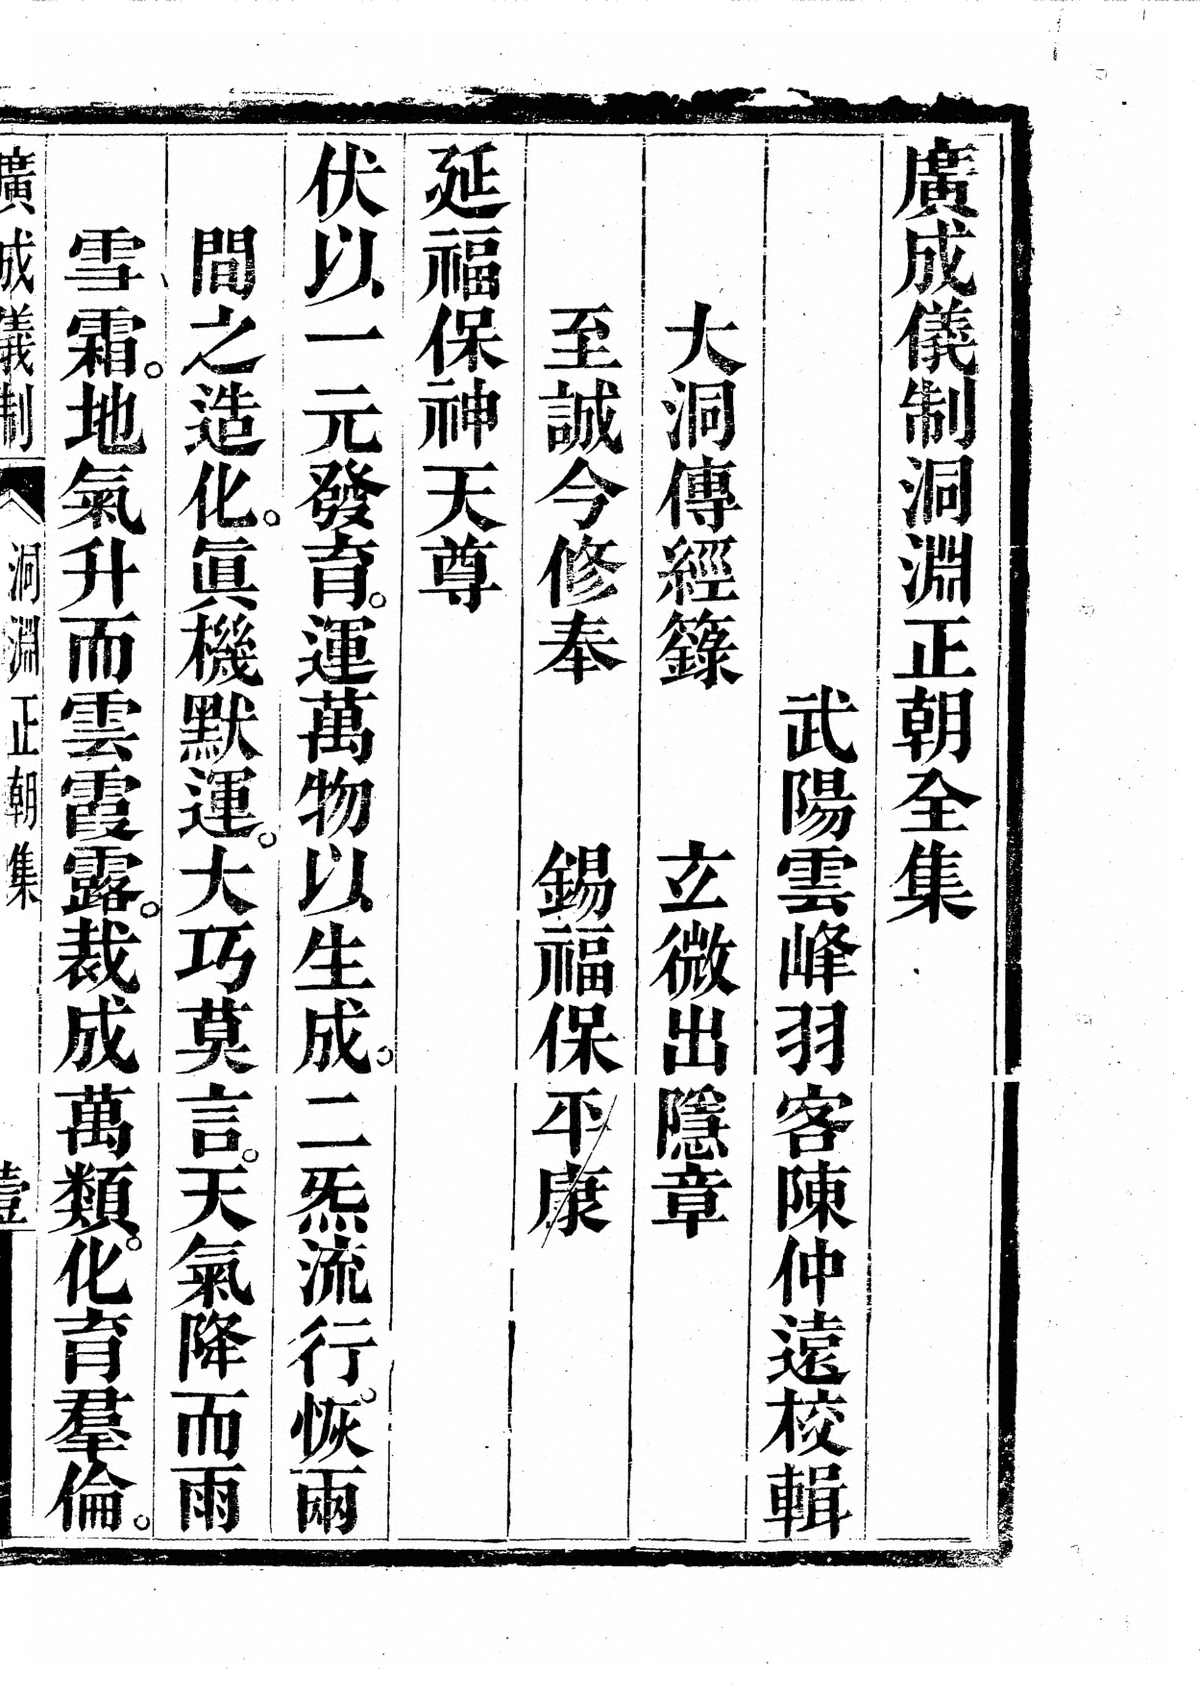 廣成儀制洞淵正朝全集
武陽雲峰羽客陳仲遠校輯
大洞傳經籙　玄微出隱章
至誠今修奉　錫福保平康
延福保神天尊
伏以一元發育。運萬物以生成。二炁流行。恢兩
間之造化。眞機默運。大巧莫言。天氣降而雨
雪霜。地氣升而雲霞露。裁成萬類。化育羣倫。
廣成儀制　洞淵正朝集　壹